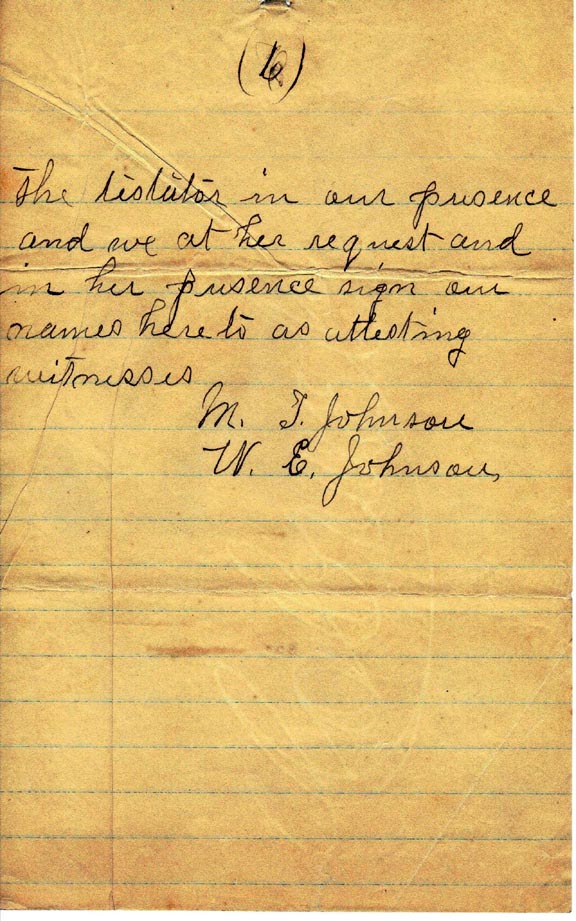 (6)
the testator in our presence
and we at her request and
in her presence sign our
names here to as attesting
witnesses
M. T. Johnson
W. E. Johnson,